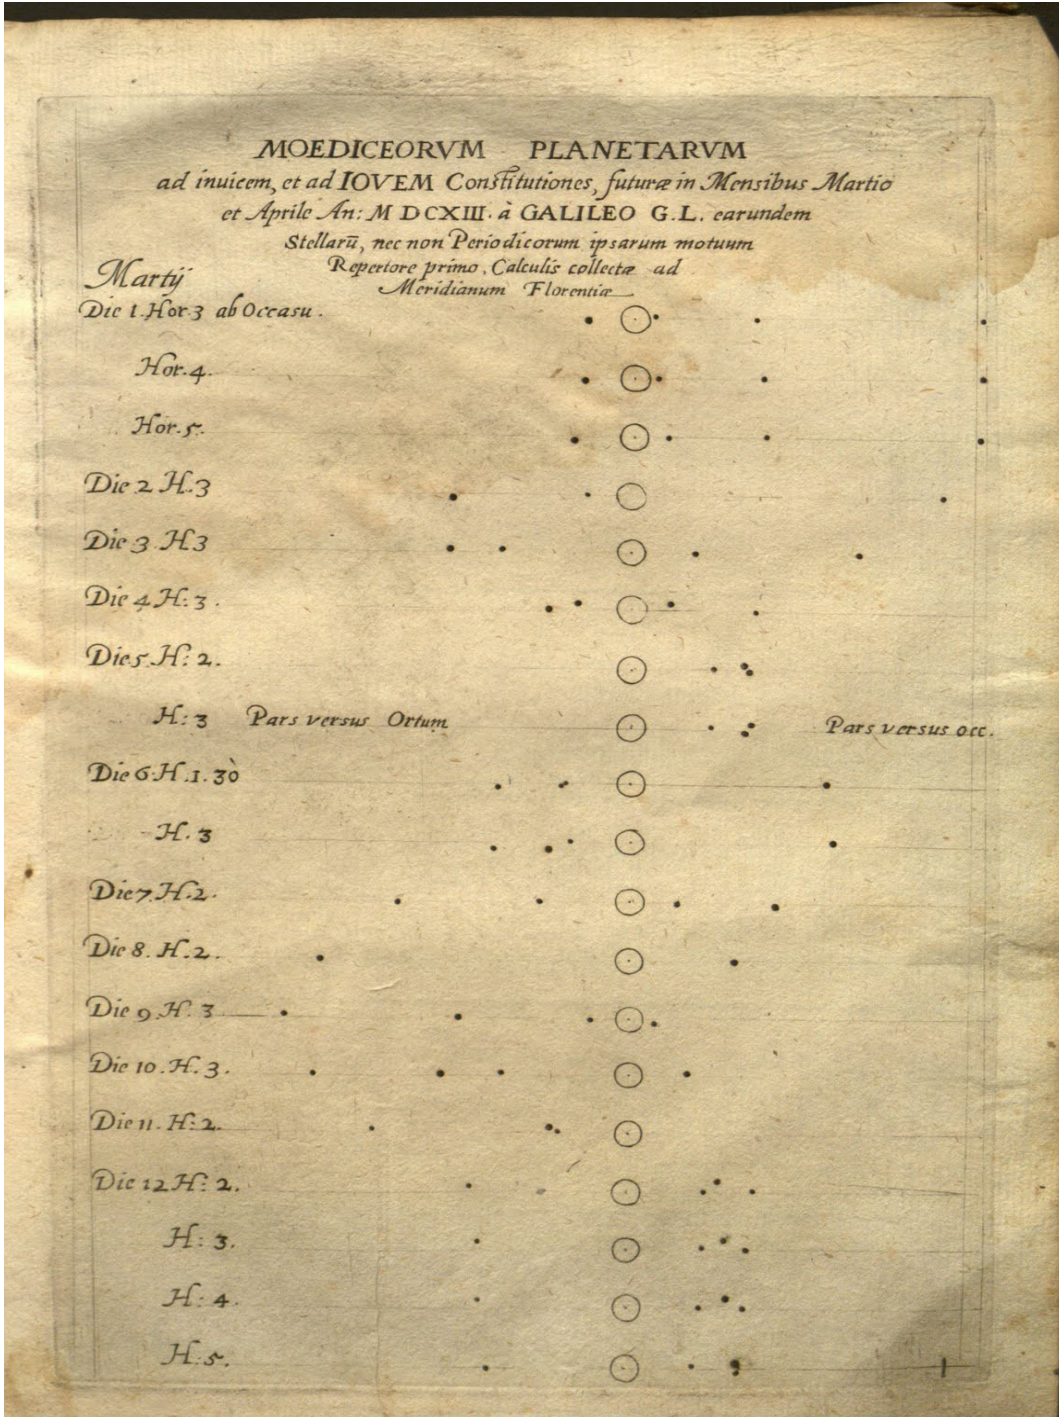 MOEDICEORVM PLANETARVM
ad inuicem, et ad IOVEM Constitutiones, futuræ in Mensibus Martio
et Aprile An: M DCXIII. à GALILEO G.L. earundem
Stellarū, nec non Periodicorum ipsarum motuum
Repertore primo, Calculis collectæ ad
Meridianum Florentiæ
Martij
Die 1. Hor. 3 ab Occasu.
Hor. 4.
Hor. 5.
Die 2 H. 3
Die 3 H. 3
Die 4 H: 3.
Die 5. H: 2.
H: 3 Pars versus Ortum Pars versus occ.
Die 6. H. 1. 30
H. 3
Die 7. H. 2.
Die 8. H. 2.
Die 9 H. 3
Die 10. H. 3.
Die 11. H: 2.
Die 12 H: 2.
H: 3.
H: 4.
H: 5.